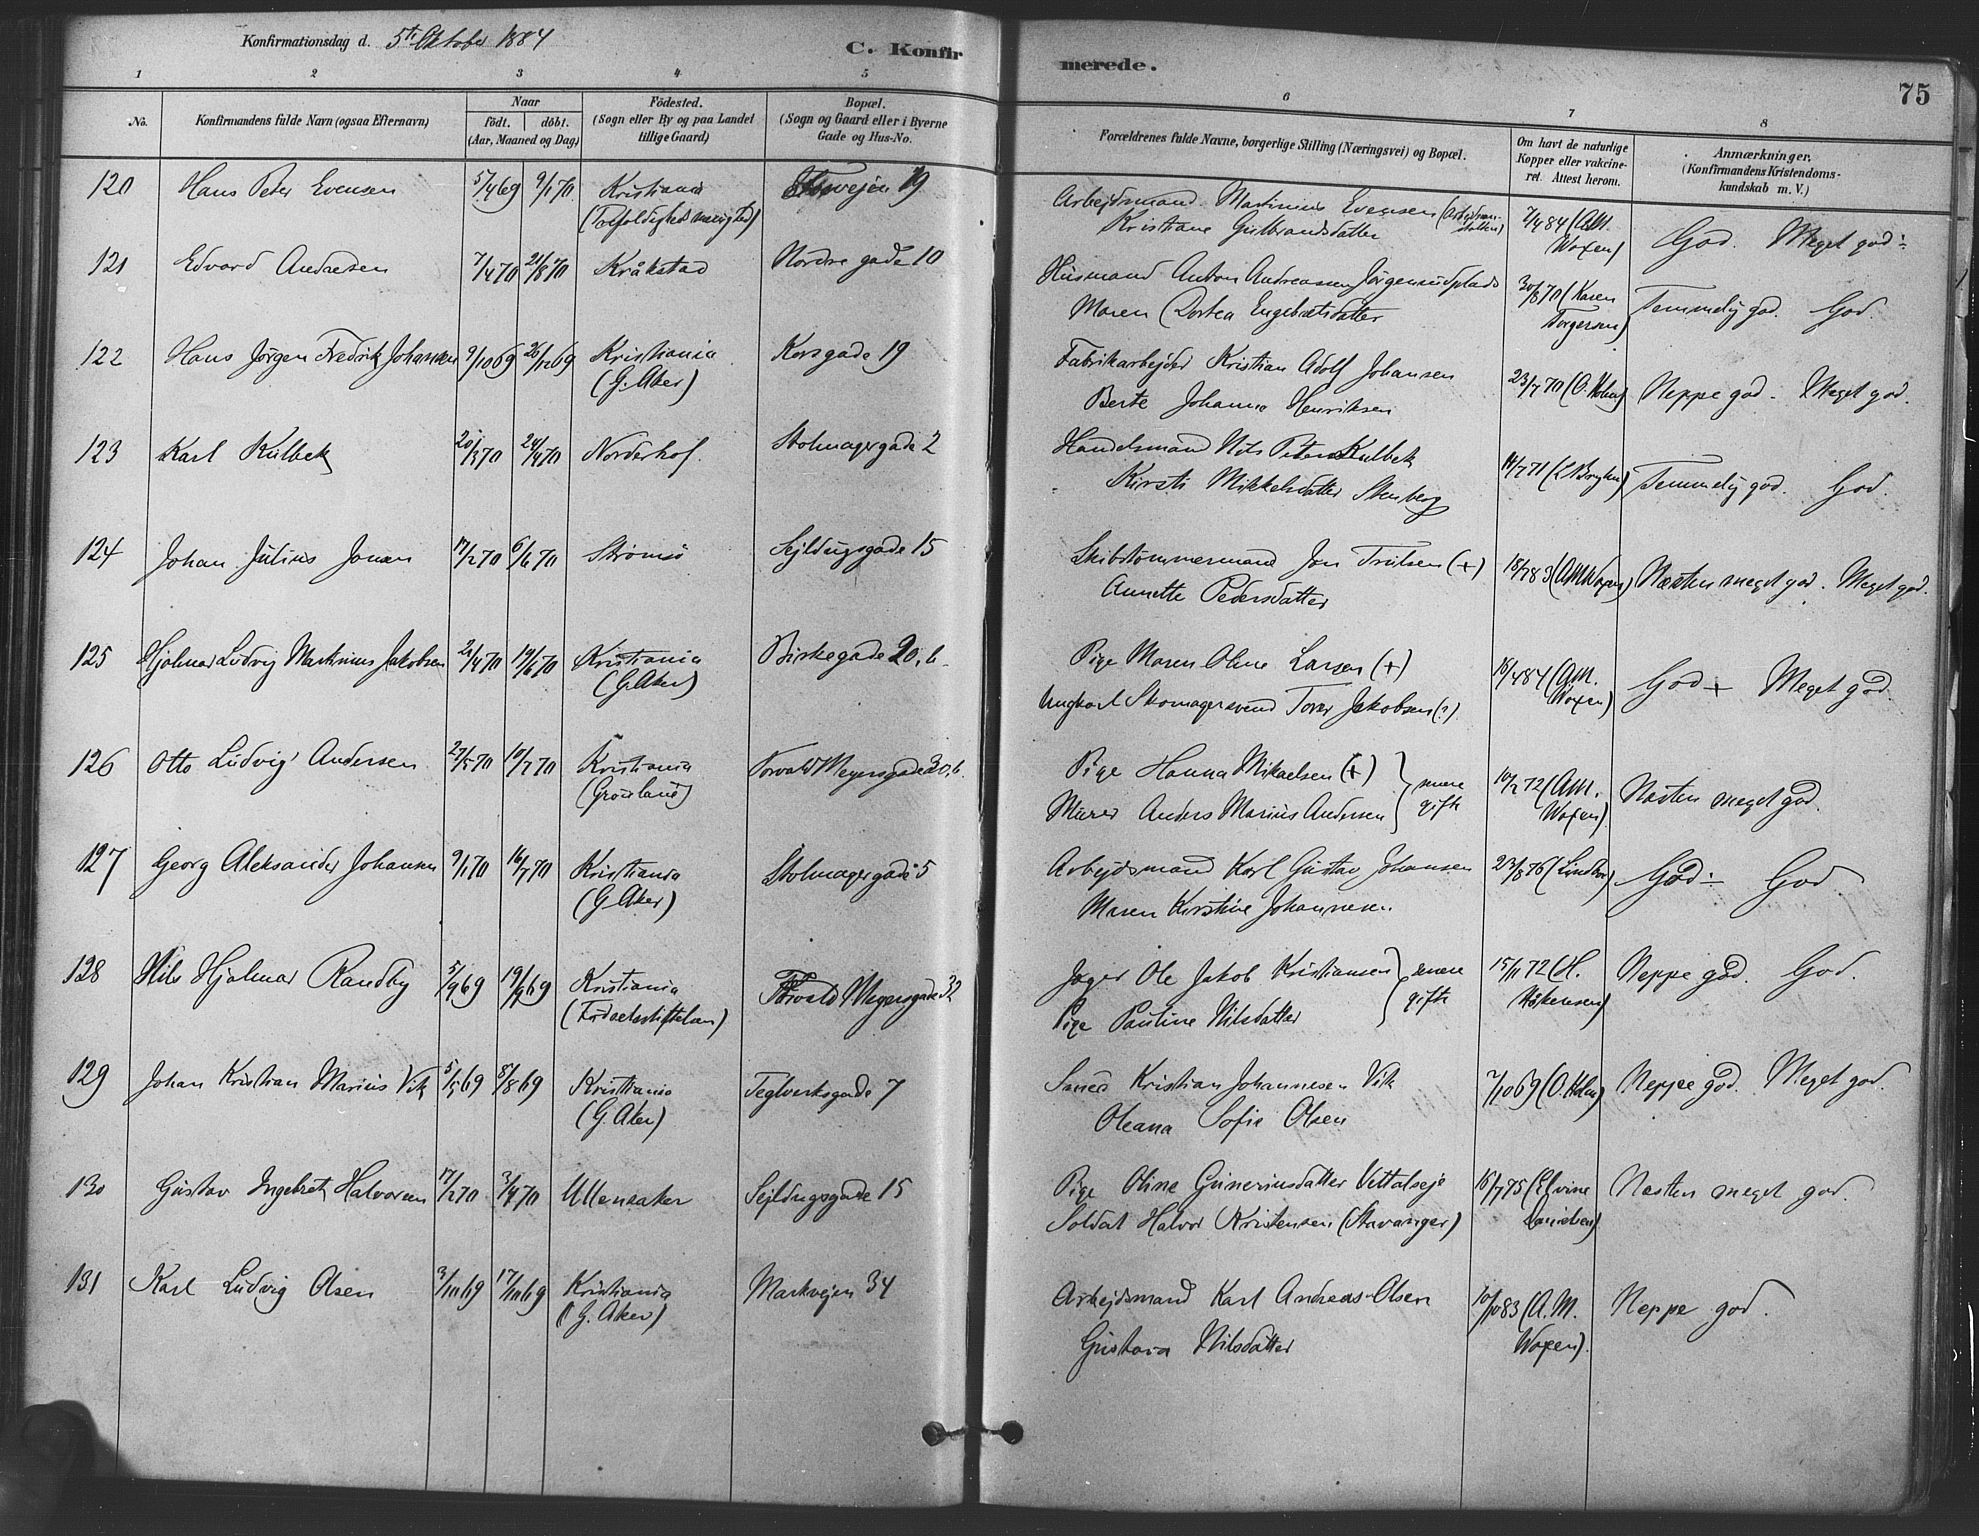 Konfirmationsdag d. 5te Oktober 1884
C. Konfirmerede.
75
1 2 3 4 5 6 7 8
No.
Konfirmandens fulde Navn (ogsaa Efternavn)
Naar
Födt. döbt.
(Aar, Maaned og Dag)
Födested.
(Sogn eller By og paa Landet
tillige Gaard)
Bopæl.
(Sogn og Gaard eller i Byerne
Gade og Hus-No.
Forældrenes fulde Navne, borgerlige Stilling (Næringsvei) og Bopæl.
Om havt de naturlige
Kopper eller vakcine-
ret. Attest herom.
Anmærkninger.
(Konfirmandens Kristendoms-
kundskab m. V.)
120 Hans Peter Evensen 5/4 69 9/1 70 Kristiania 19 Arbejdsmand Martinius Evensen 7/4 84 (A.M.
(Trefoldighedsmenighed) Kristiane Gulbrandsdatter Woxen) God. Meget god ÷
121 Edvard Andresen 7/4 70 21/8 70 Kråkstad Nordre gade 10 Husmand Anton Andreassen Jørgensrudplads 30/8 70 (Karen
Maren Dortea Engebretsdatter Torgersen) Temmelig god. God.
122 Hans Jørgen Fredrik Johansen 9/10 69 26/12 69 Kristiania Korsgade 19 Fabrikarbejder Kristian Adolf Johansen 23/7 70 (O. Holm) Neppe god. Meget god.
(G. Aker) Berte Johanne Henriksen
123 Karl Kulbek 20/3 70 24/4 70 Norderhof. Stolmagergade 2 Handelsmand Nils Petersen Kulbek 14/7 71 Temmelig god. God.
Kirsti Mikkelsdatter Stenberg
124 Johan Julius Jonsen 17/2 70 6/6 70 Strømsø Sejldugsgade 15 Skibstømmermand Jon Trulsen (+) 18/7 83 (A.M. Woxen) Næsten meget god. Meget god.
Annette Pedersdatter
125 Hjalmar Ludvig Martinius Jakobsen 21/4 70 19/6 70 Kristiania Birkegade 20, b. Pige Maren Oline Larsen (+) 16/4 84 (A.M.
(G. Aker) Ungkarl Skomagersvend Torer Jakobsen (?) Woxen) God + Meget god.
126 Otto Ludvig Andersen 27/5 70 10/7 70 Kristiania Torvald Meyersgade 30, b. Pige Hanna Mikaelsen (+) senere 10/2 72 (A.M.
(Grønland) Murer Anders Marius Andersen gifte Woxen). Næsten meget god.
127 Georg Aleksander Johansen 9/1 70 16/7 70 Kristiania Stolmagergade 5 Arbejdsmand Karl Gustav Johansen 23/8 76 God ÷ God
(G. Aker) Maren Kirstine Johannesen.
128 Nils Hjalmar Randby 5/9 69 19/9 69 Kristiania Torvald Meyersgade 32 Jæger Ole Jakob Kristiansen senere 15/11 72 (H. Neppe god. God.
(Fødselsstiftelsen) Pige Pauline Nilsdatter gifte Håkensen)
129 Johan Kristian Marius Vik 5/5 69 8/8 69 Kristiania Teglverksgade 7 Smed Kristian Johannesen Vik 7/10 69 (O. Holm) Neppe god. Meget god.
(G. Aker) Oleana Sofie Olsen
130 Gustav Ingebret Halvorsen 17/2 70 3/4 70 Ullensaker Sejldugsgade 15 Pige Oline Guneriusdatter Vittalseje 16/7 75 (Elvine Næsten meget god.
Soldat Halvor Kristensen (Stavanger) Danielsen)
131 Karl Ludvig Olsen 3/10 69 17/10 69 Kristiania Markvejen 34 Arbejdsmand Karl Andreas Olsen 10/10 83 (A.M. Neppe god.
(G. Aker) Gustava Nilsdatter Woxen).